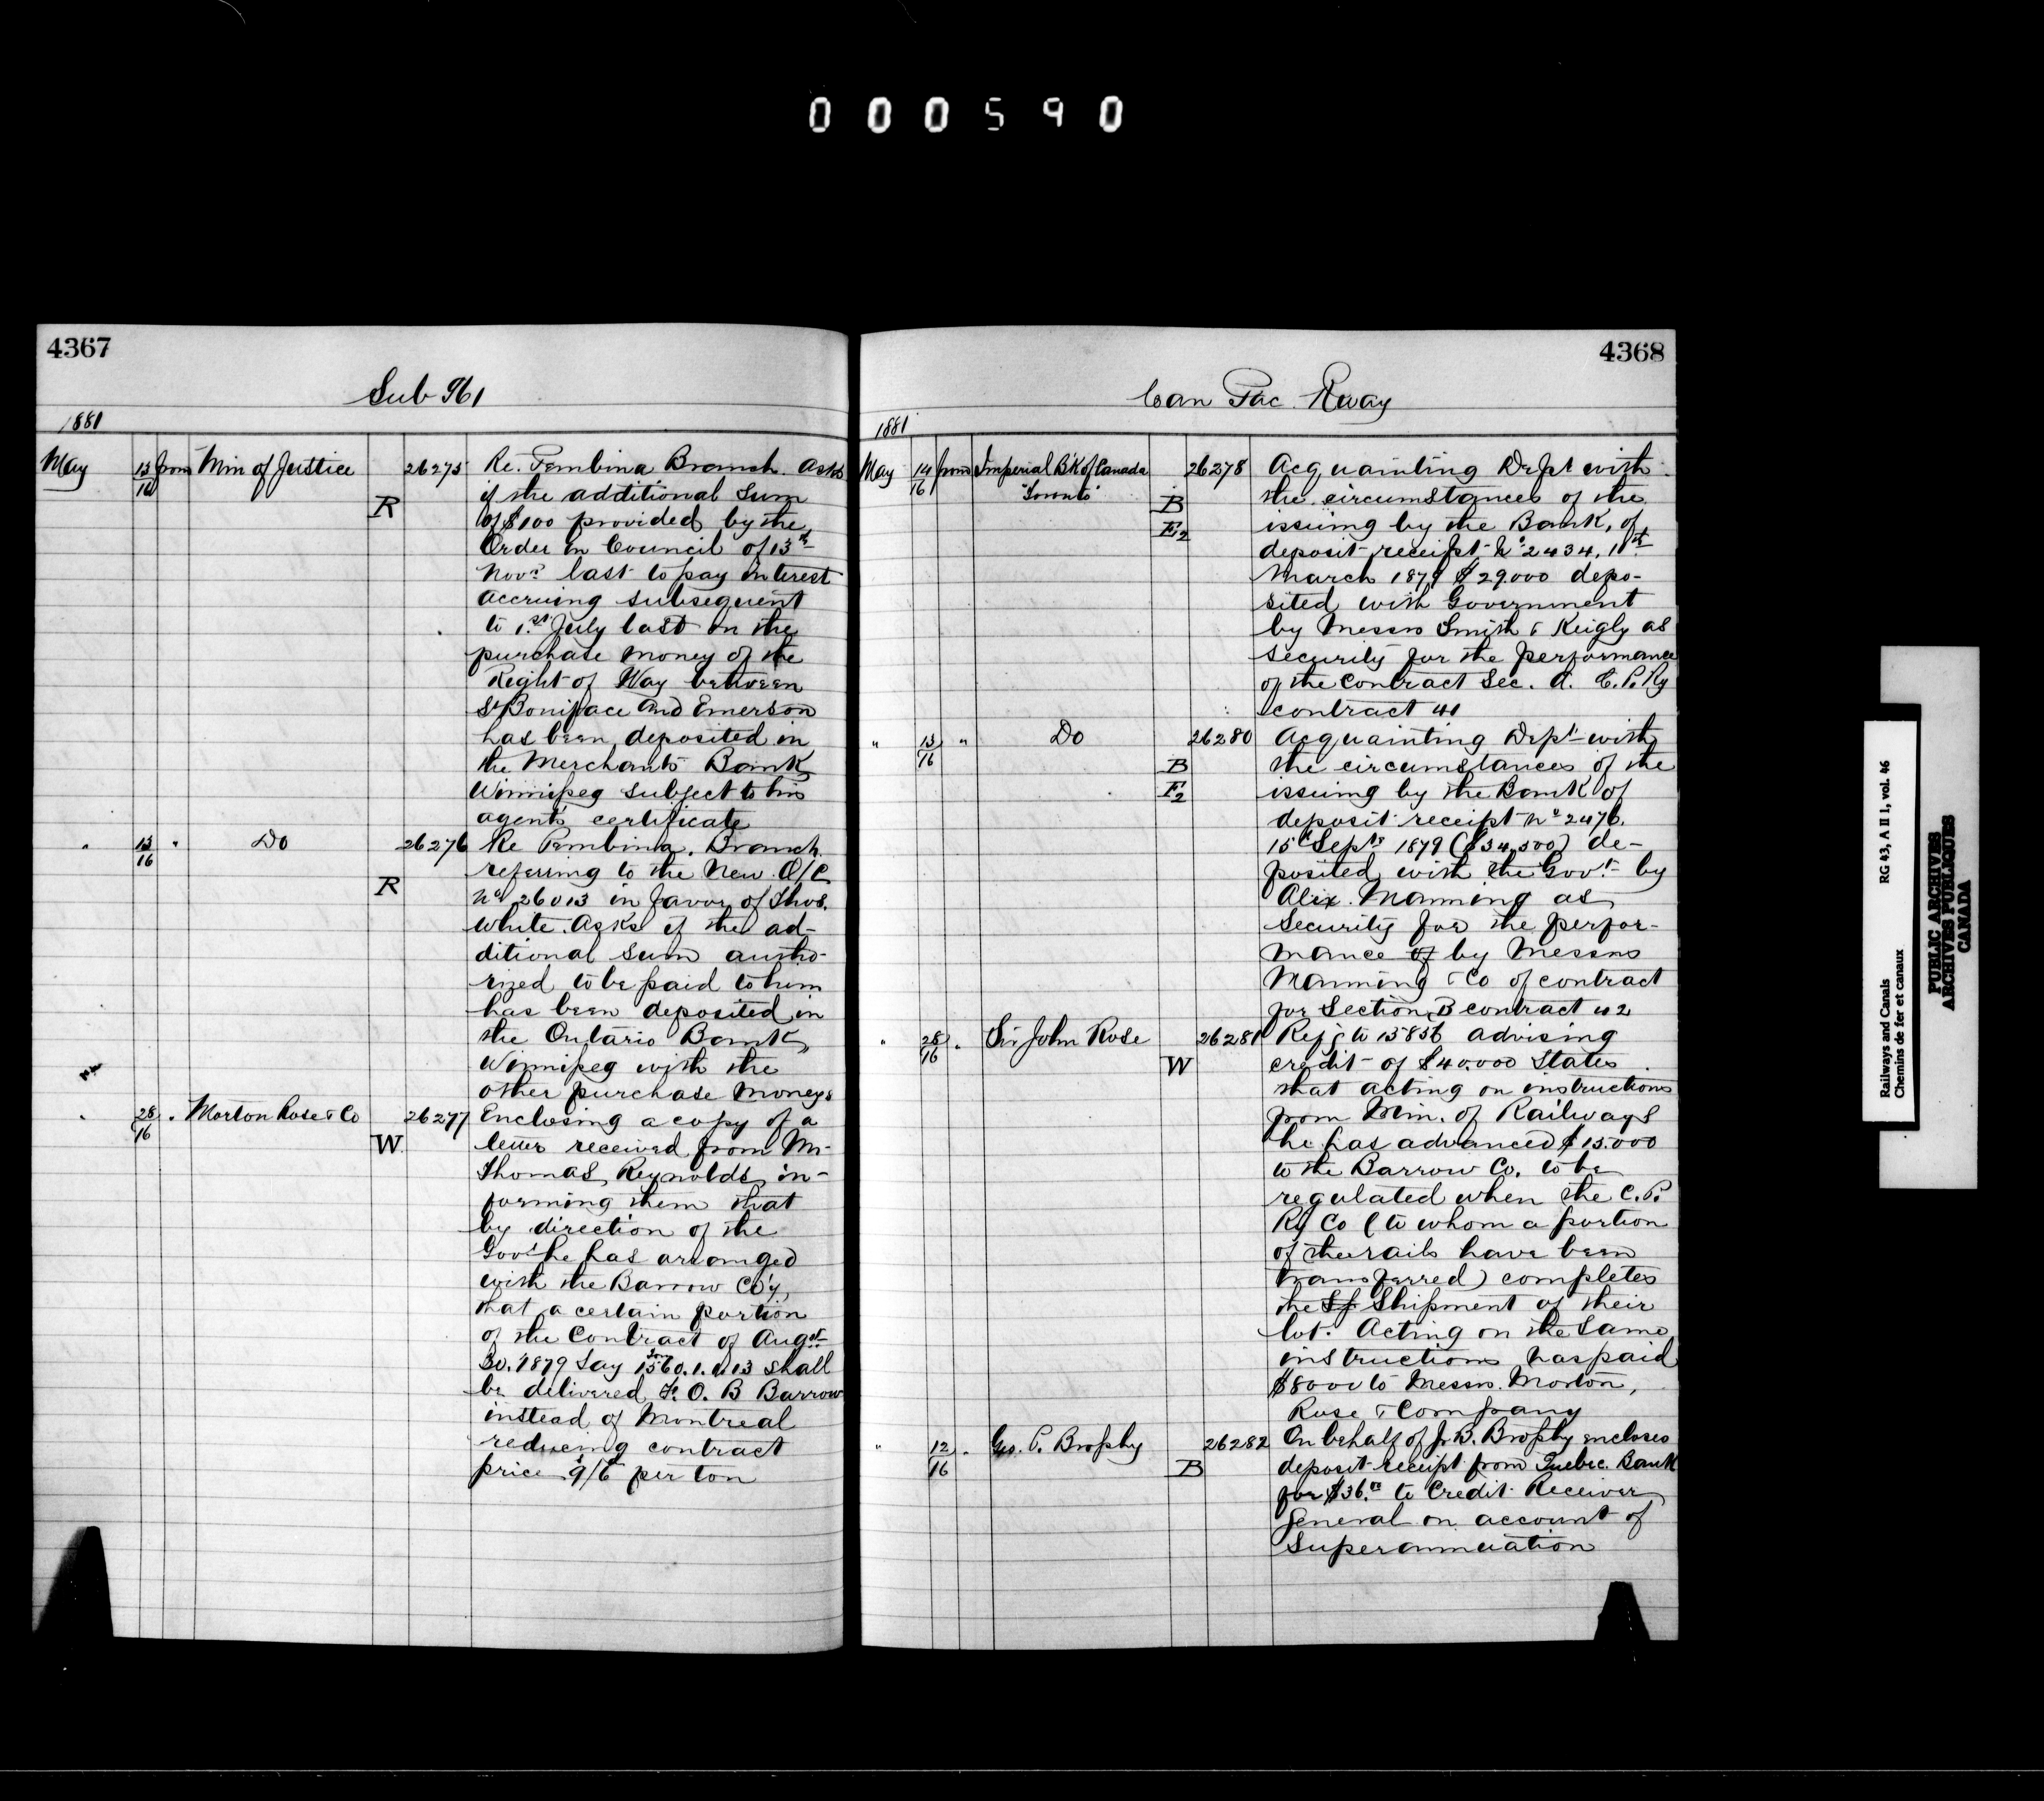 000590
4367
Sub 961
1881
May 13/16 from Min of Justice R 26275 Re. Pembina Branch. Asks
if the additional Sum
of $100 provided by the
Order in Council of 13th
Novr last to pay interest
accruing subsequent
to 1st July last on the
purchase money of the
Right of Way between
St Boniface and Emerson
has been deposited in
the Merchants Bank
Winnipeg subject to his
agent's certificate
" 13/16 " Do R 26276 Re Pembina. Branch.
referring to the New O/C
No 26013 in favor of Thos.
White. Asks if the ad-
ditional sum autho-
rized to be paid to him
has been deposited in
the Ontario Bank,
Winnipeg with the
other purchase moneys
" 28/16 " Morton Rose & Co W. 26277 Enclosing a copy of a
letter received from Mr
Thomas Reynolds in-
forming them that
by direction of the
Govt he has arranged
with the Barrow Co'y,
that a certain portion
of the Contract of Augst
30. 1879 Say 1560 tons. 1. 1. 13 shall
be delivered F. O. B Barrow
instead of Montreal
reducing contract
price 9/6 per ton
4368
Can Pac. Rway
1881
May 14/16 from Imperial B'k of Canada "Toronto" B E2 26278 Acquainting Dept with
the circumstances of the
issuing by the Bank, of
deposit receipt No 2434, 11th
March 1879 $29000 depo-
sited with Government
by Messrs Smith & Keigly as
Security for the performance
of the Contract Sec. A. C. P. Ry
contract 41
" 13/16 " Do B E2 26280 Acquainting Dept with
the circumstances of the
issuing by the Bank of
deposit receipt No 2476.
15 Sept 1879 ($34,500) de-
posited with the Govt by
Alix. Manning as
Security for the perfor-
mance of by Messrs
Manning & Co of contract
for Section B contract 42
" 28/16 " Sir John Rose W 26281 Refg to 15856 advising
credit of $40.000 States
that acting on instructions
from Min. of Railways
he has advanced $15.000
to the Barrow Co. to be
regulated when the C. P.
Ry Co (to whom a portion
of the rails have been
transferred) completes
the Sf Shipment of their
lot. Acting on the same
instructions has paid
$8000 to Messrs. Morton,
Rose & Company
" 12/16 " Geo. P. Brophy B 26282 On behalf of J. B. Brophy encloses
deposit receipt from Quebec Bank
for $36.00 to Credit Receiver
General on account of
Superannuation
Railways and Canals RG 43, A II 1, vol. 46
Chemins de fer et canaux
PUBLIC ARCHIVES
ARCHIVES PUBLIQUES
CANADA